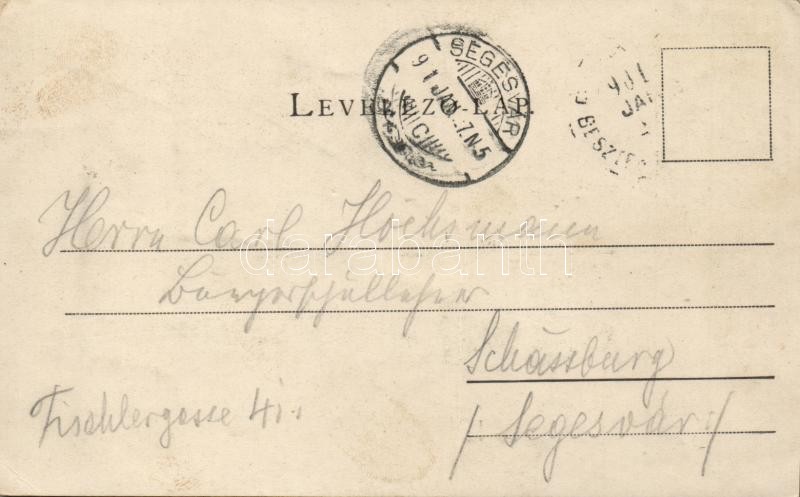 LEVELEZŐ-LAP.
SEGESVÁR
91 JAN. 7. N5
901
JAN
BESZTE
Herrn Carl Höchsmann
Bürgerschullehrer
Schässburg
/: Segesvár :/
Tischlergasse 41.
darabanth